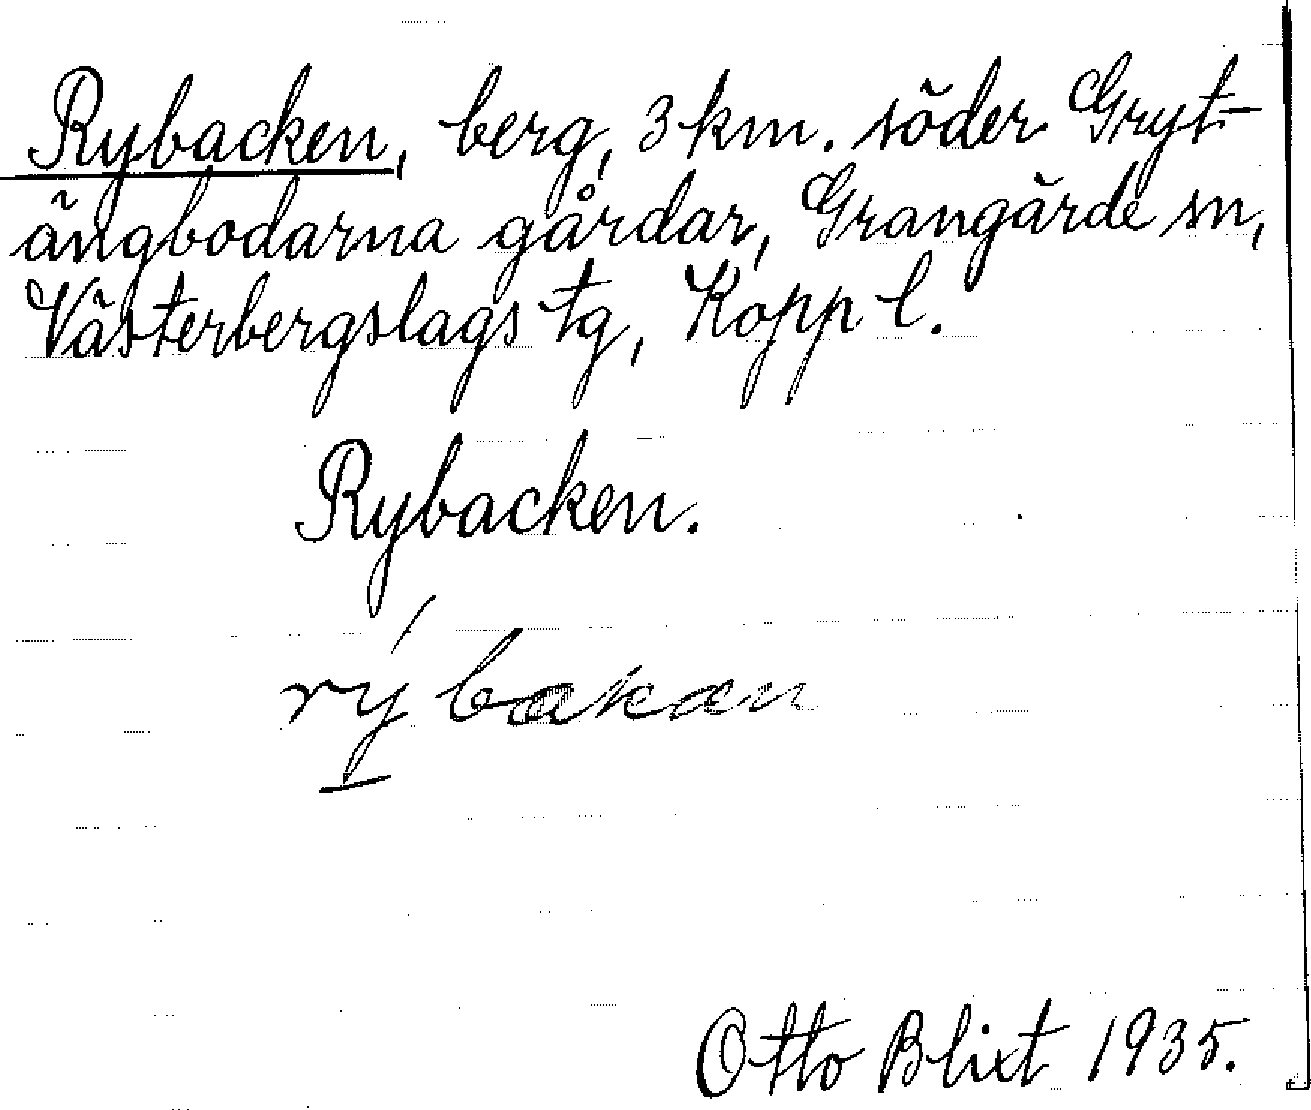 Rybacken, berg, 3 km. söder Gryt-
ängbodarna gårdar, Grangärde sn,
Västerbergslags tg, Kopp l.
Rybacken.
rýbakæn
Otto Blixt 1935.